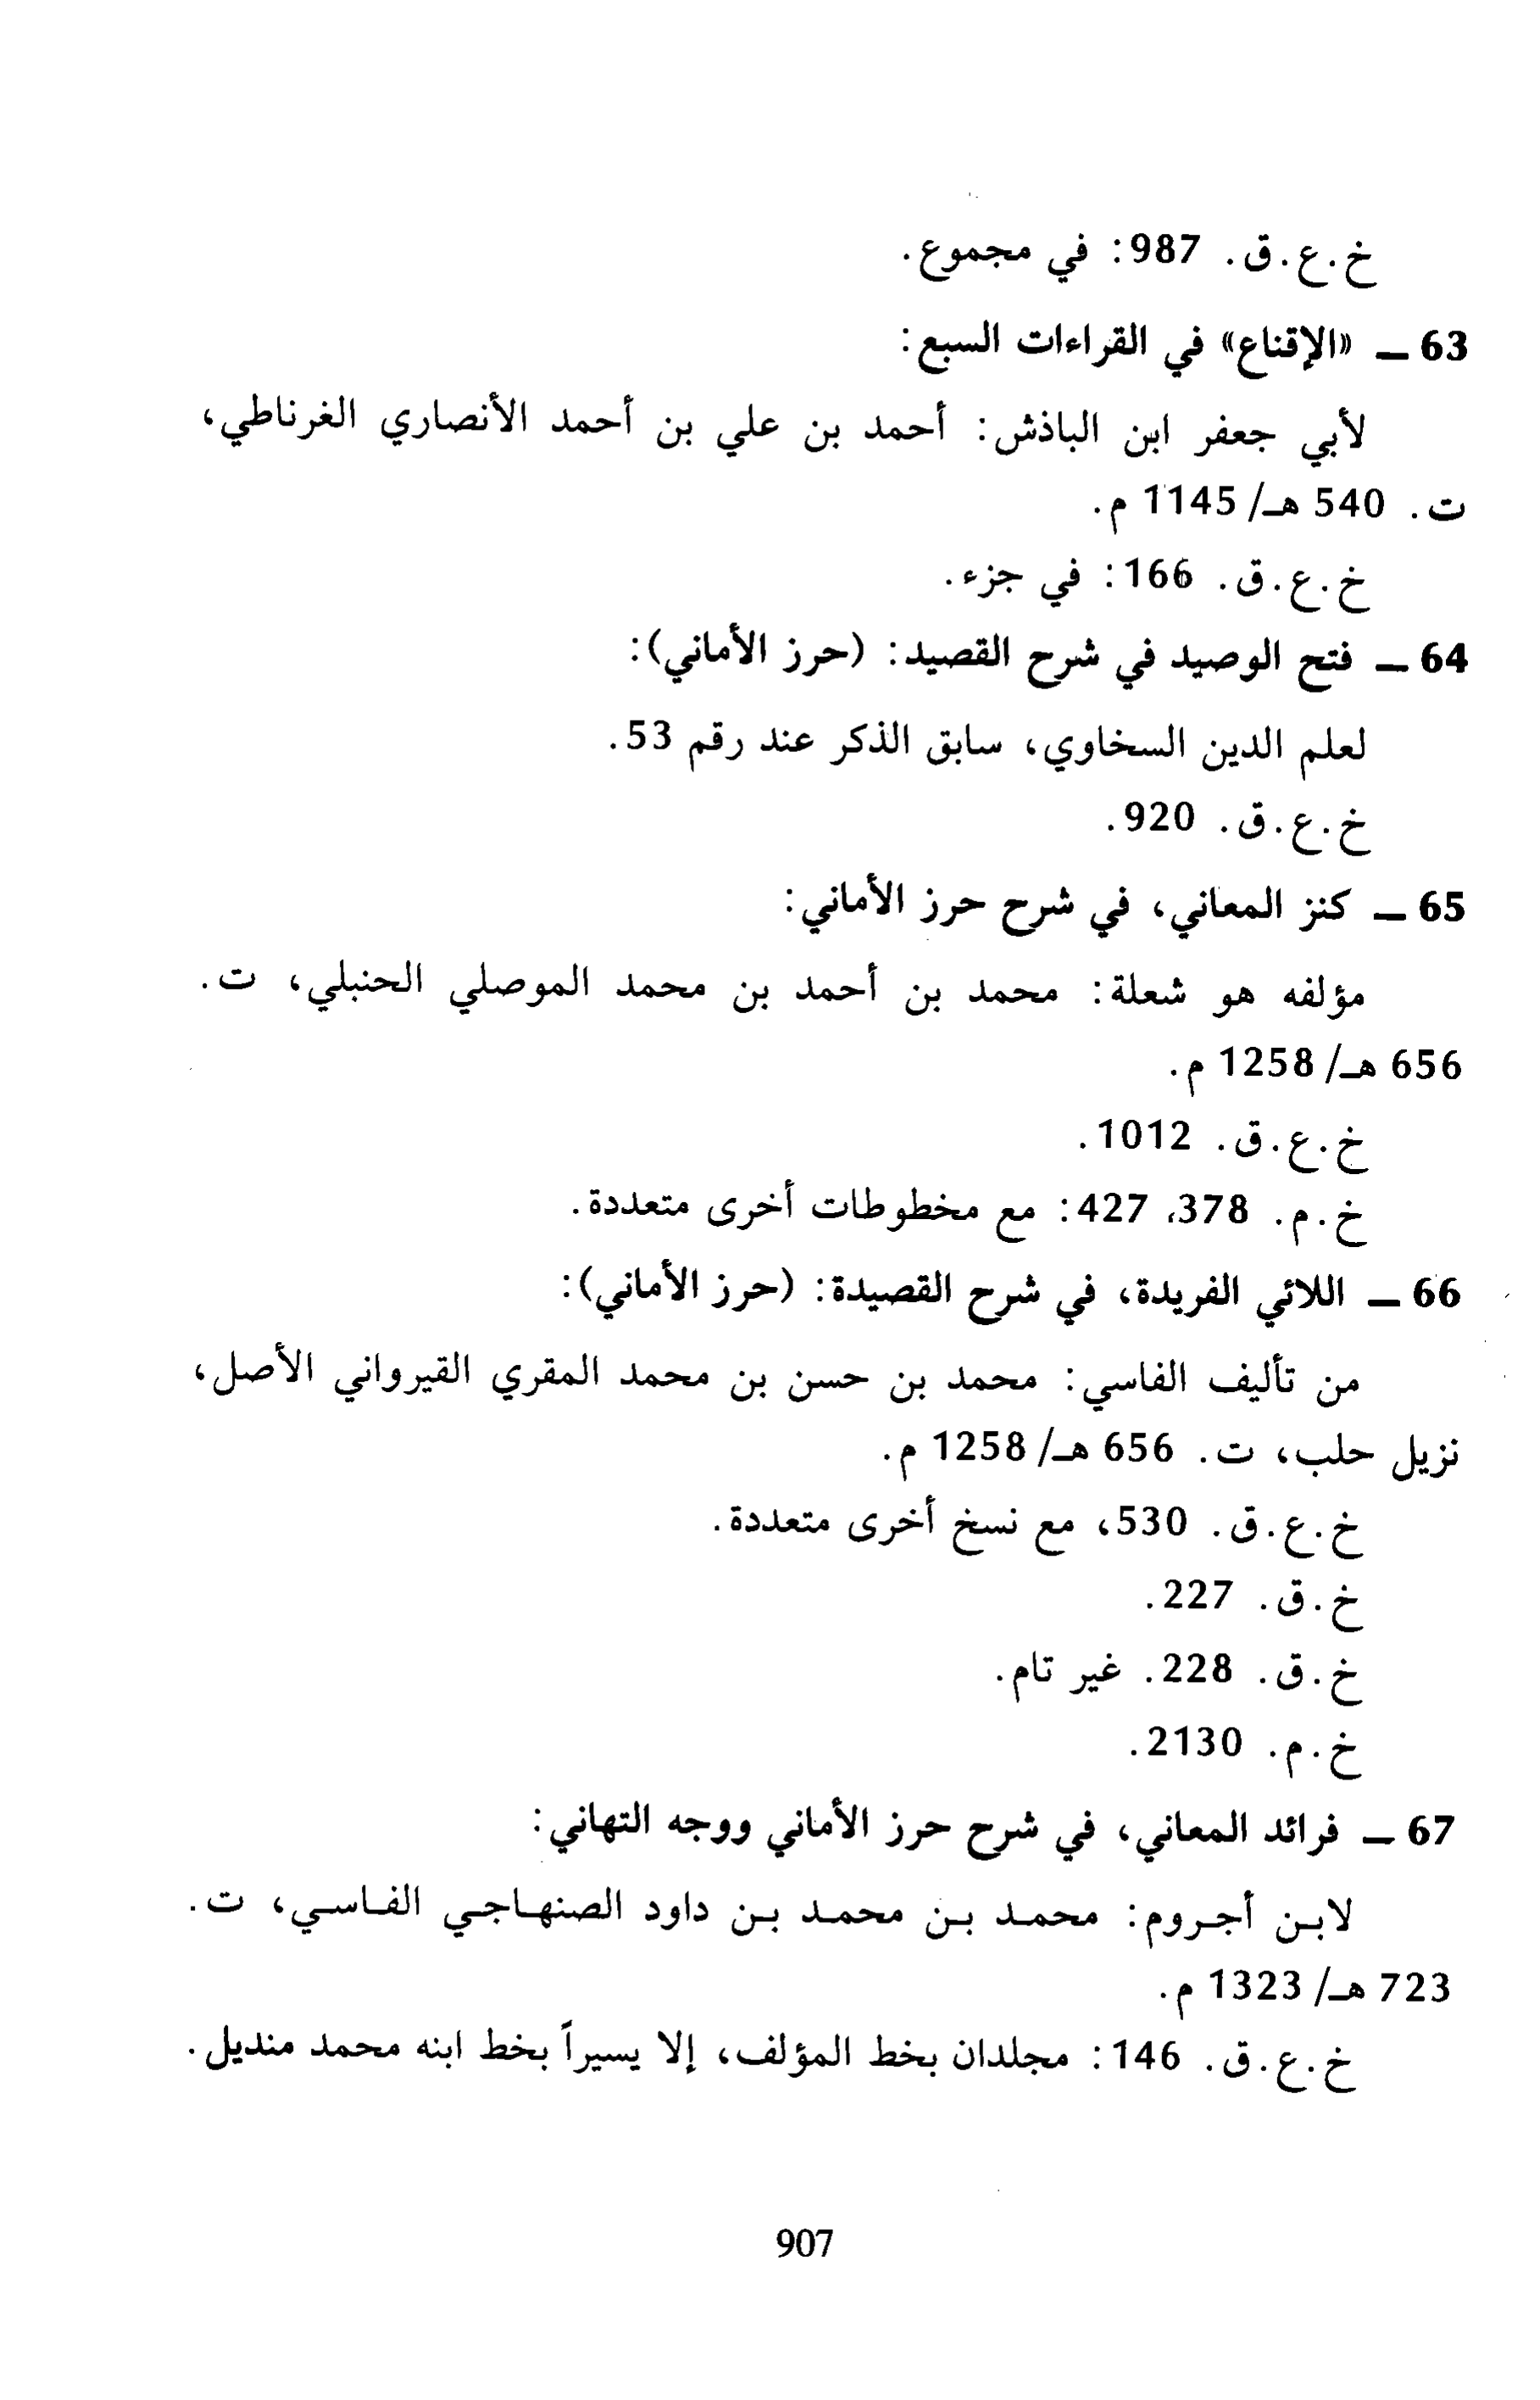 خ.ع.ق. 987: في مجموع.
63 ــ «الإقناع» في القراءات السبع:
لأبي جعفر ابن الباذش: أحمد بن علي بن أحمد الأنصاري الغرناطي،
ت. 540 هـ/ 1145 م.
خ.ع.ق. 166: في جزء.
64 ــ فتح الوصيد في شرح القصيد: (حرز الأماني):
لعلم الدين السخاوي، سابق الذكر عند رقم 53.
خ.ع.ق. 920.
65 ــ كنز المعاني، في شرح حرز الأماني:
مؤلفه هو شعلة: محمد بن أحمد بن محمد الموصلي الحنبلي، ت.
656 هـ/ 1258 م.
خ.ع.ق. 1012.
خ.م. 378، 427: مع مخطوطات أخرى متعددة.
66 ــ اللائي الفريدة، في شرح القصيدة: (حرز الأماني):
من تأليف الفاسي: محمد بن حسن بن محمد المقري القيرواني الأصل،
نزيل حلب، ت. 656 هـ/ 1258 م.
خ.ع.ق. 530، مع نسخ أخرى متعددة.
خ.ق. 227.
خ.ق. 228. غير تام.
خ.م. 2130.
67 ــ فرائد المعاني، في شرح حرز الأماني ووجه التهاني:
لابن أجروم: محمد بن محمد بن داود الصنهاجي الفاسي، ت.
723 هـ/ 1323 م.
خ.ع.ق. 146: مجلدان بخط المؤلف، إلا يسيراً بخط ابنه محمد منديل.
907